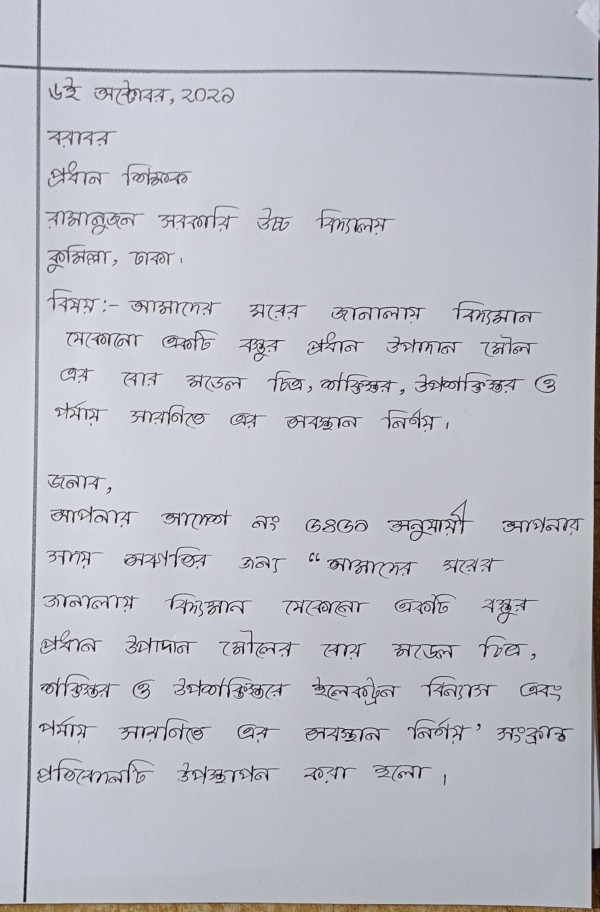 ৬ই অক্টোবর, ২০২১
বরাবর
প্রধান শিক্ষক
রামানুজন সরকারি উচ্চ বিদ্যালয়
কুমিল্লা, ঢাকা।
বিষয়:- আমাদের ঘরের জানালায় বিদ্যমান
যেকোনো একটি বস্তুর প্রধান উপাদান মৌল
এর বোর মডেল চিত্র, শক্তিস্তর, উপশক্তিস্তর ও
পর্যায় সারনিতে এর অবস্থান নির্ণয়।
জনাব,
আপনার আদেশ নং ৩৪৩০ অনুযায়ী আপনার
সদয় অবগতির জন্য “আমাদের ঘরের
জানালায় বিদ্যমান যেকোনো একটি বস্তুর
প্রধান উপাদান মৌলের বোর মডেল চিত্র,
শক্তিস্তর ও উপশক্তিস্তরে ইলেকট্রন বিন্যাস এবং
পর্যায় সারনিতে এর অবস্থান নির্ণয়’ সংক্রান্ত
প্রতিবেদনটি উপস্থাপন করা হলো।